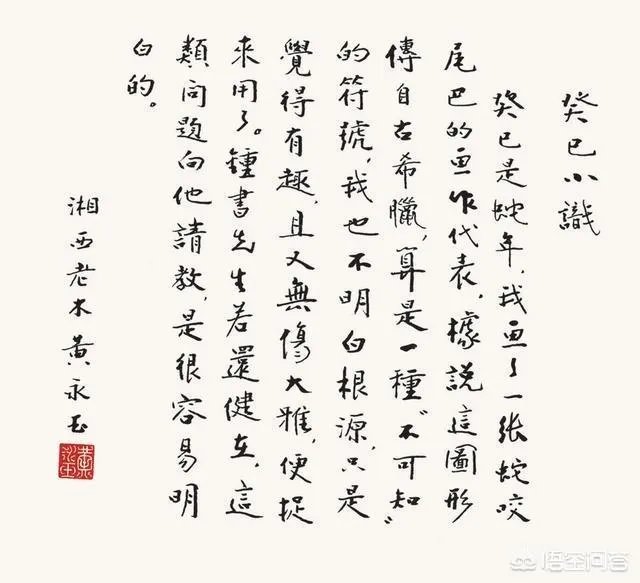 癸巳小識
癸巳是蛇年，我画了一张蛇咬
尾巴的画作代表，據說這圖形
傳自古希臘，算是一種“不可知”
的符號，我也不明白根源，只是
覺得有趣，且又無傷大雅，便捉
來用了。鍾書先生若還健在，這
類问题向他請教，是很容易明
白的。
湘西老木黄永玉
黄永玉
悟空问答